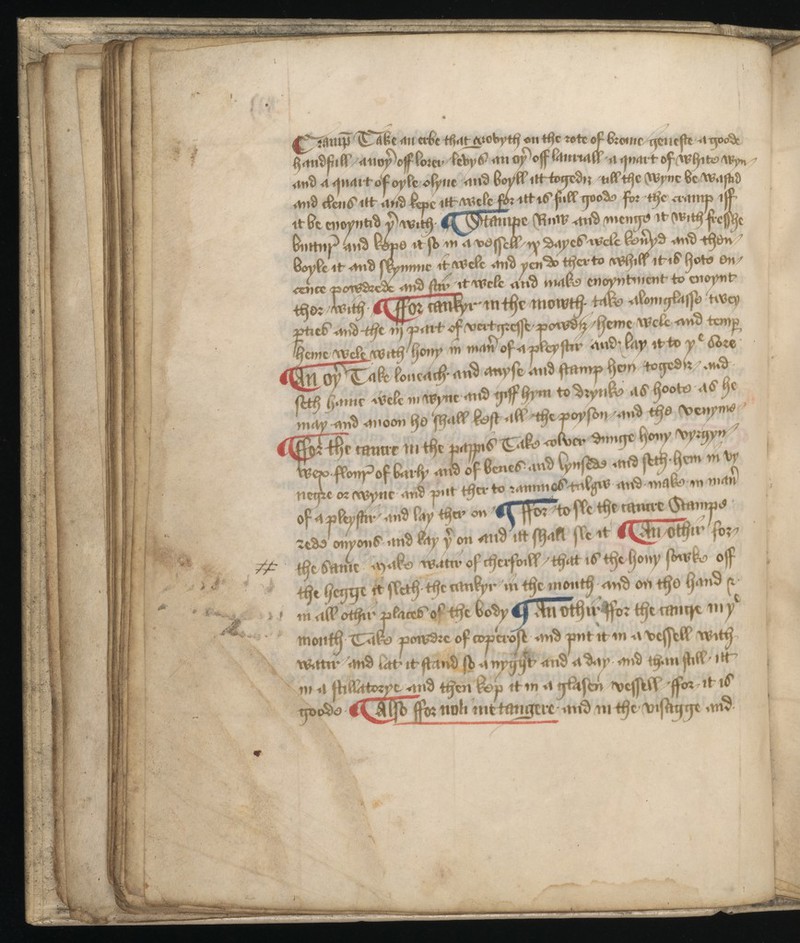 Cramp̄ Take an erbe that growyth on the rote of brome geneste a goode
handfull anoy̛ off lorer levys an oy̛ off lauriall a quart of white wyn
and a quart of oyle olyue and boyll itt togedir till the wyne be wastid
and clens itt and kepe itt wele for itt is full goode for the cramp iff
it be enoyntid þ̛ with ¶ Stampe Ruw and menge it with fresshe
buttur̛ and kepe it so in a vessell ix dayes wele koưyd and then
boyle it and skymme it wele and yen do ther to whill it is hote en
cence powdrede and stir it wele and make enoyntment to enoynt
ther with ¶ ffor cankyr in the mowth take alomglasse twey
p̱ties and the iij part of vertgresse powdir heme wele and temp̱
heme wele with hony in man̛ of a pleystir and lay it to yᵉ sore
¶ An oy̛ Take loueach and anyse and stamp hem togedir and
seth hame wele in wyne and giff hym to drynke as hoote as he
may and anoon he shall kest all the poyson and the venyme
¶ ffor the cancre in the pappis Take colver dunge hony vyrgyn
wex flour̛ of barly and of benes and lynsede and seth hem in vy
negre or wyne and put ther to rammes talgw and make in man̛
of a pleystir and lay ther on ¶ ffor to sle the cancre Stampe
rede onyons and lay þ̛ on and itt shall sle it ¶ An othir for
the same make watir of cherfoill that is the hony sowke off
the hegge it sleth the cankyr in the mouth and on the hand &
in all othir places of the body ¶ An othir ffor the cangre in yᵉ
mouth Take powdre of coperose and put it in a vessell with
watir and lat it stand so a nyght and a day and than still itt
in a stillatorye and then kep it in a glasen vessell ffor it is
goode ¶ Also ffor noli me tangere and in the visagge and